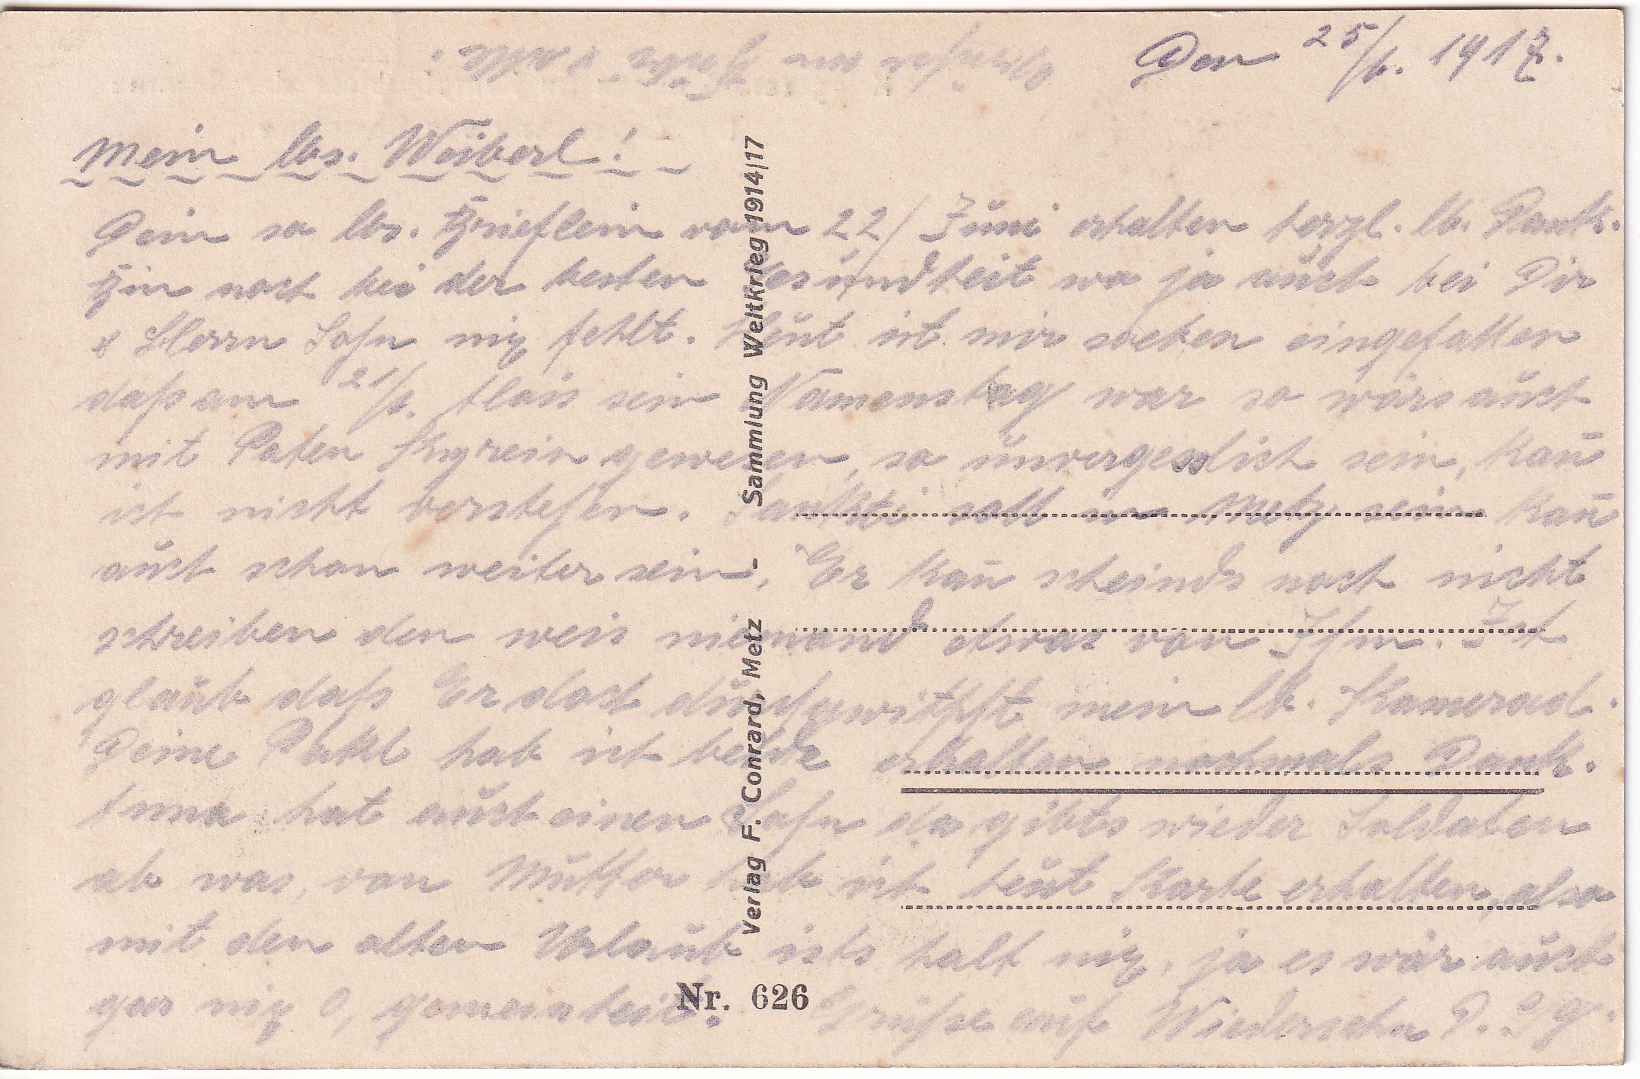 Den 25/6. 1917.
Mein lbs. Weiberl!
Dein so lbs. Brieflein vom 22/ Juni erhalten herzl. lb. Dank.
Bin noch bei der besten Gesundheit wo ja auch bei Dir
& Herrn Sohn nix fehlt. Heut ist mir soeben eingefallen
daß am 21/6. Alois sein Namenstag war so wärs auch
mit Paten gewesen, so unvergesslich sein, kañ
ich nicht verstehen. soll in Metz sein kañ
auch schon weiter sein. Er kañ scheinds noch nicht
schreiben den weis niemand etwas von Ihm. Ich
glaub daß Er doch mein lb. Kamerad.
Deine Pakl hab ich beide erhalten nochmals Dank.
hat auch einen Sohn da gibts wieder Soldaten
ab was, von Mutter hab ich heut Karte erhalten, also
mit den alten Urlaub ists halt nix, ja es wär auch
gar nix O, gemeinheit. Grüße auf Wiedersehn D. Gg.
Grüßen an &
Verlag F. Conrard, Metz - Sammlung Weltkrieg 1914/17
Nr. 626